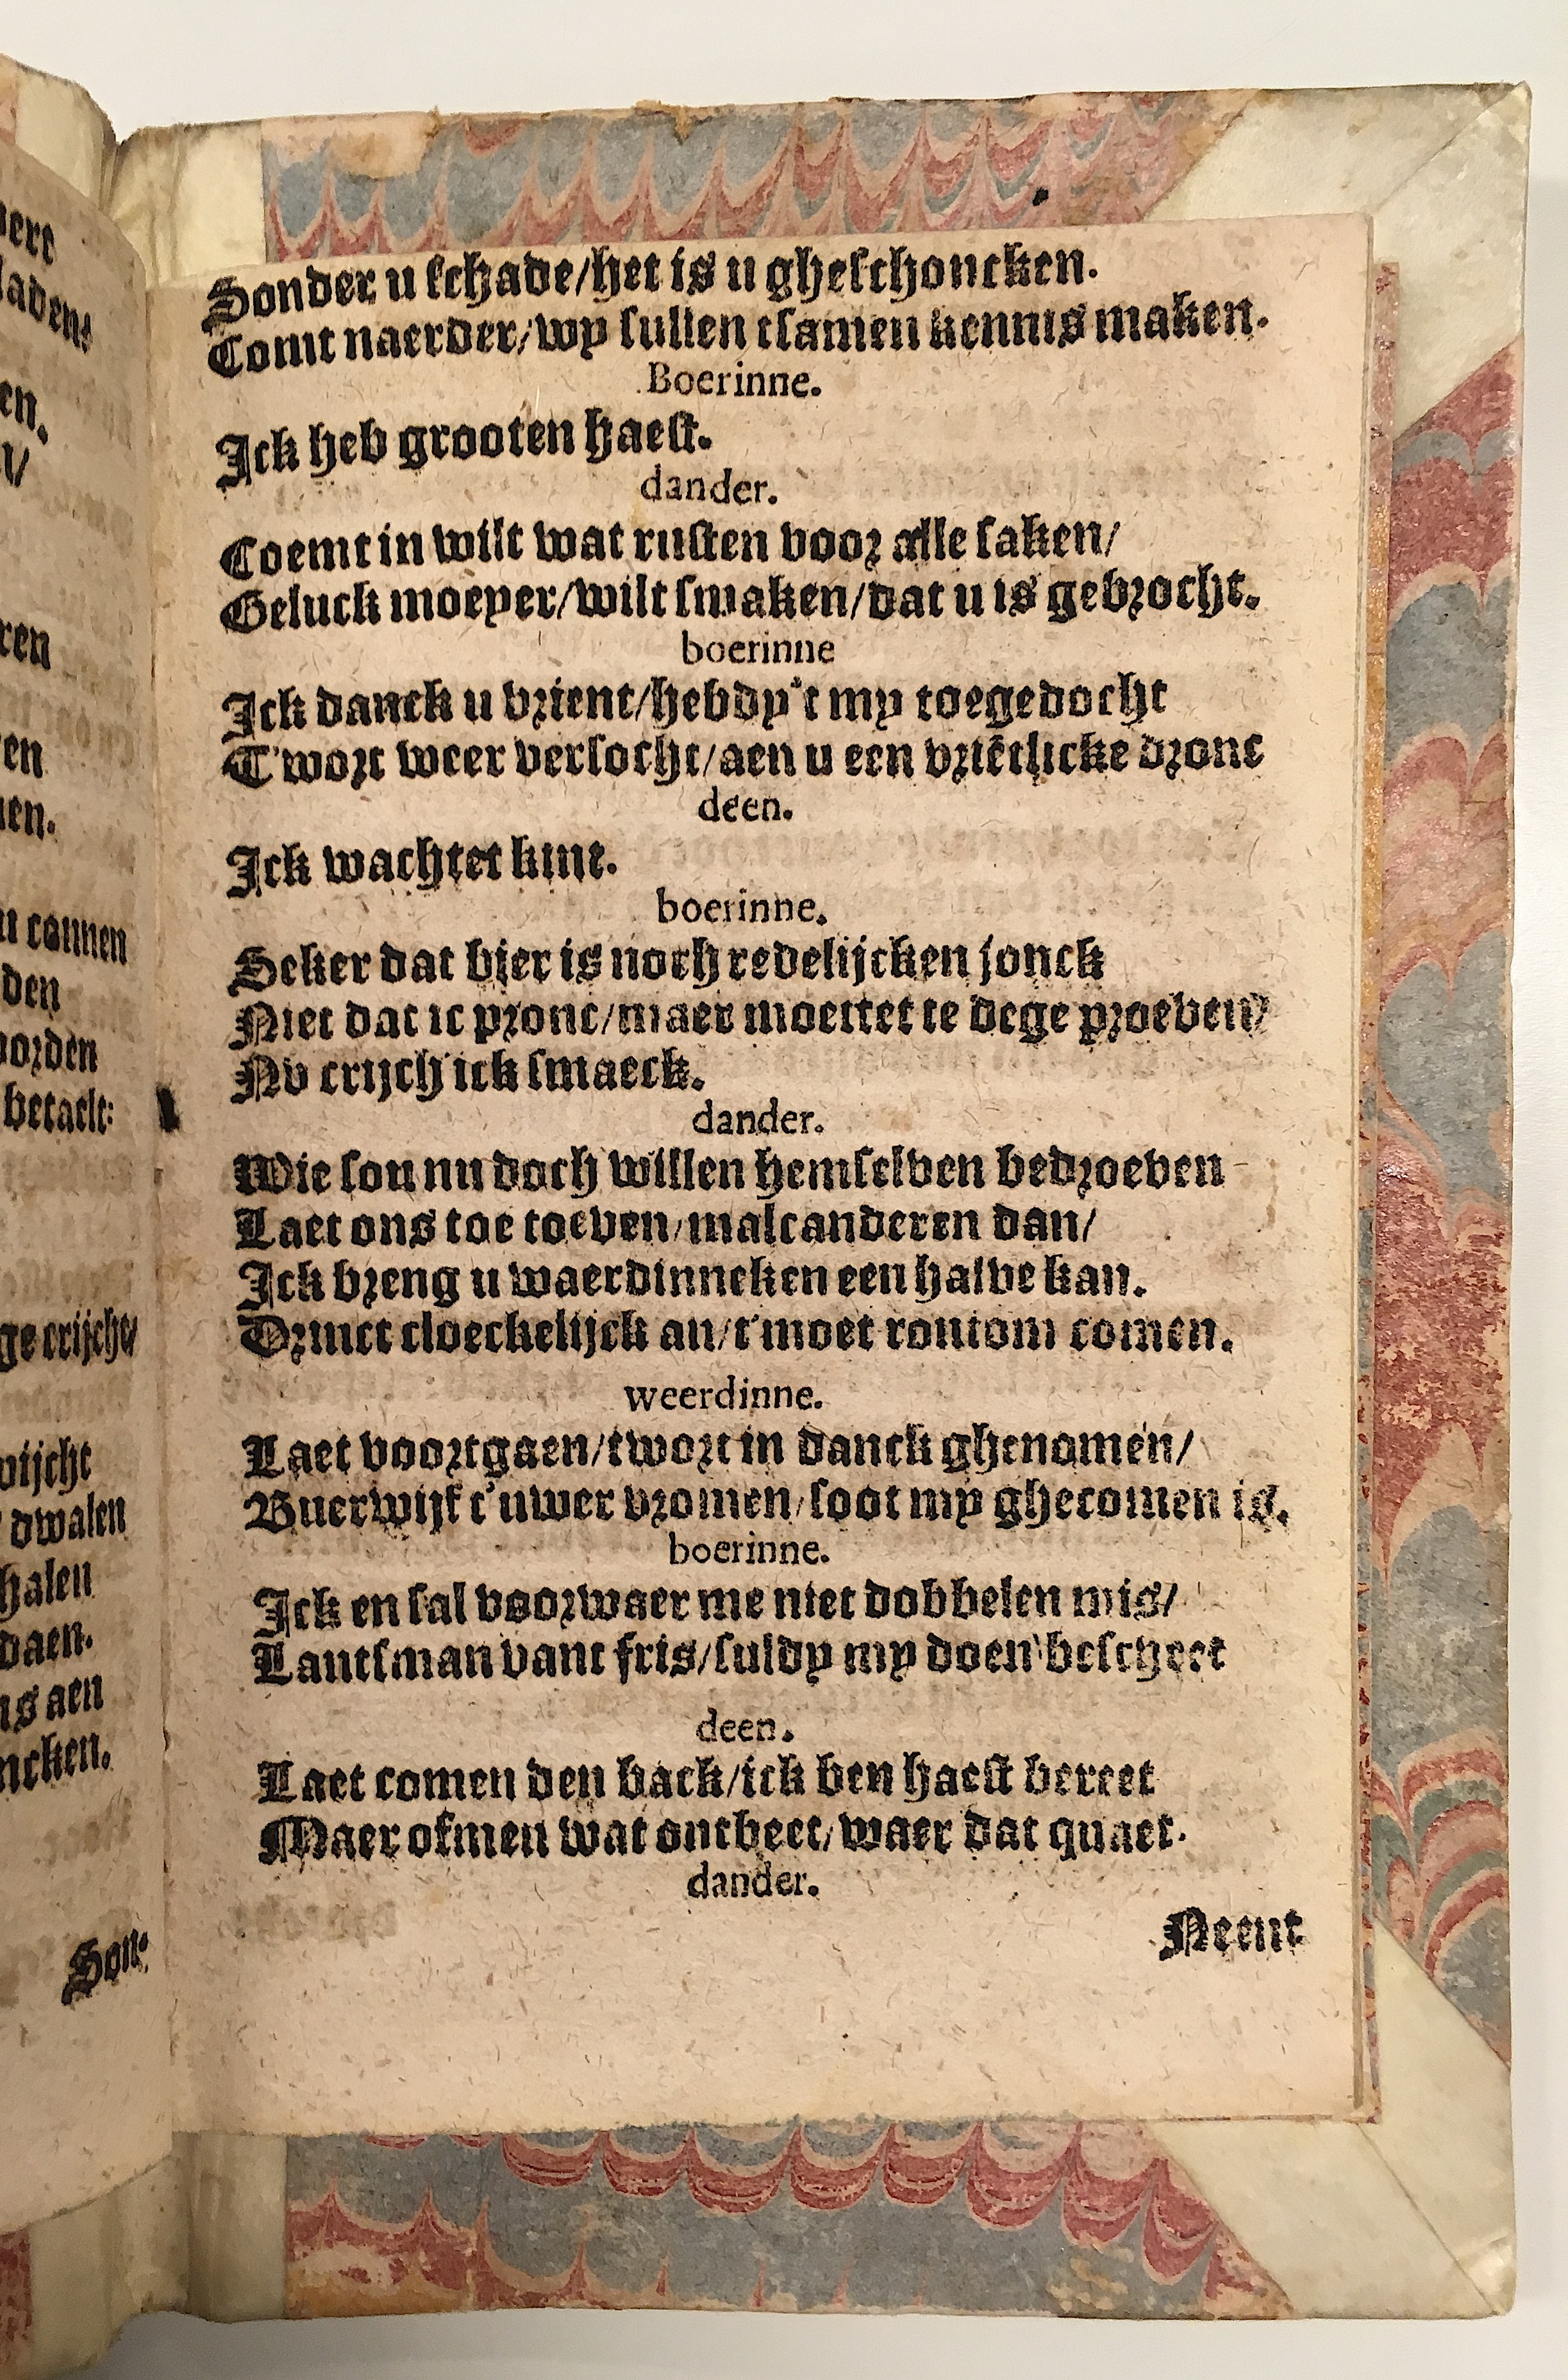 Sonder u schade/het is u gheschoncken.
Comt naerder/wy sullen tsamen kennis maken.
Boerinne.
Ick heb grooten haest.
dander.
Coemt in wilt wat rusten voor alle saken/
Geluck moeyer/wilt smaken/dat u is gebrocht.
boerinne
Ick danck u vrient/hebdy't my toegedocht
T'wort weer versocht/aen u een vriētlicke dronc
deen.
Ick wachtet kint.
boerinne.
Seker dat bier is noch redelijcken jonck
Niet dat ic pronc/maer moettet te dege proeven/
Nv crijch ick smaeck.
dander.
Wie sou nu doch willen hemselven bedroeven
Laet ons toe toeven/malcanderen dan/
Ick breng u waerdinneken een halve kan.
Drinct cloeckelijck an/t'moet rontom comen.
weerdinne.
Laet voortgaen/twort in danck ghenomen/
Buerwijf t'uwer vromen/soot my ghecomen is.
boerinne.
Ick en sal voorwaer me niet dobbelen mis/
Lantsman vant fris/suldy my doen bescheet
deen.
Laet comen den back/ick ben haest bereet
Maer ofmen wat ontbeet/waer dat quaet.
dander.
Neent
nere
laden/
en.
ren
en
nen.
u connen
den
oorden
betaelt:
ge crijcht/
wijcht
dwalen
halen
daen.
ns aen
ncken.
Son-